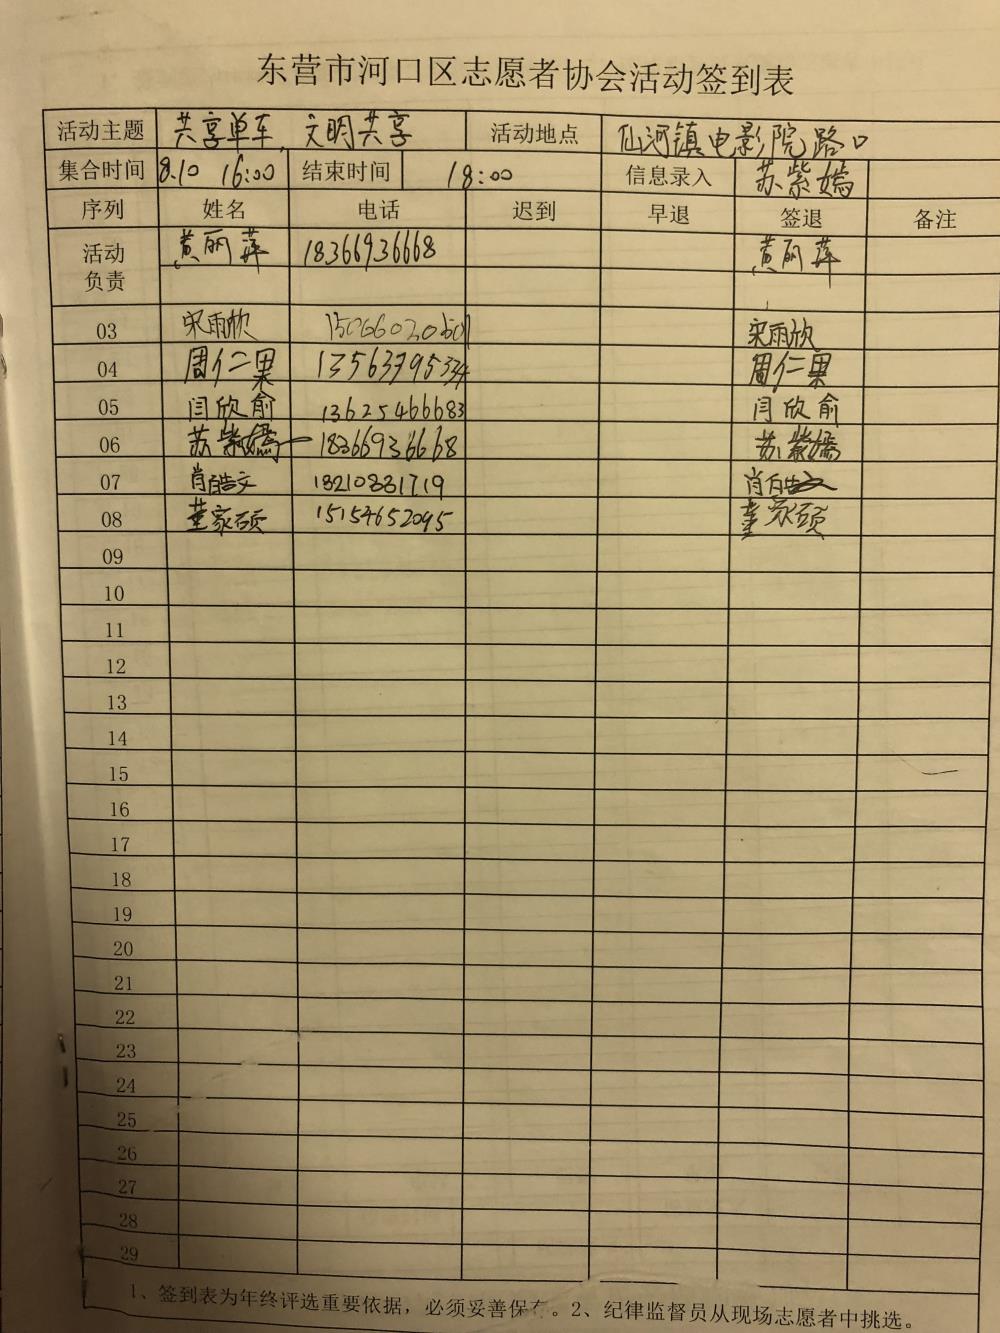 东营市河口区志愿者协会活动签到表
活动主题 共享单车,文明共享 活动地点 仙河镇电影院路口
集合时间 8.10 16:00 结束时间 18:00 信息录入 苏紫嫣
序列 姓名 电话 迟到 早退 签退 备注
活动负责 黄丽萍 18366936668 黄丽萍
03 宋雨欣 宋雨欣
04 周仁果 13563795334 周仁果
05 闫欣俞 13625466683 闫欣俞
06 苏紫嫣 18366936668 苏紫嫣
07 肖皓文 13210831719 肖皓文
08 董家硕 15154652095 董家硕
09
10
11
12
13
14
15
16
17
18
19
20
21
22
23
24
25
26
27
28
29
1、签到表为年终评选重要依据，必须妥善保存。2、纪律监督员从现场志愿者中挑选。